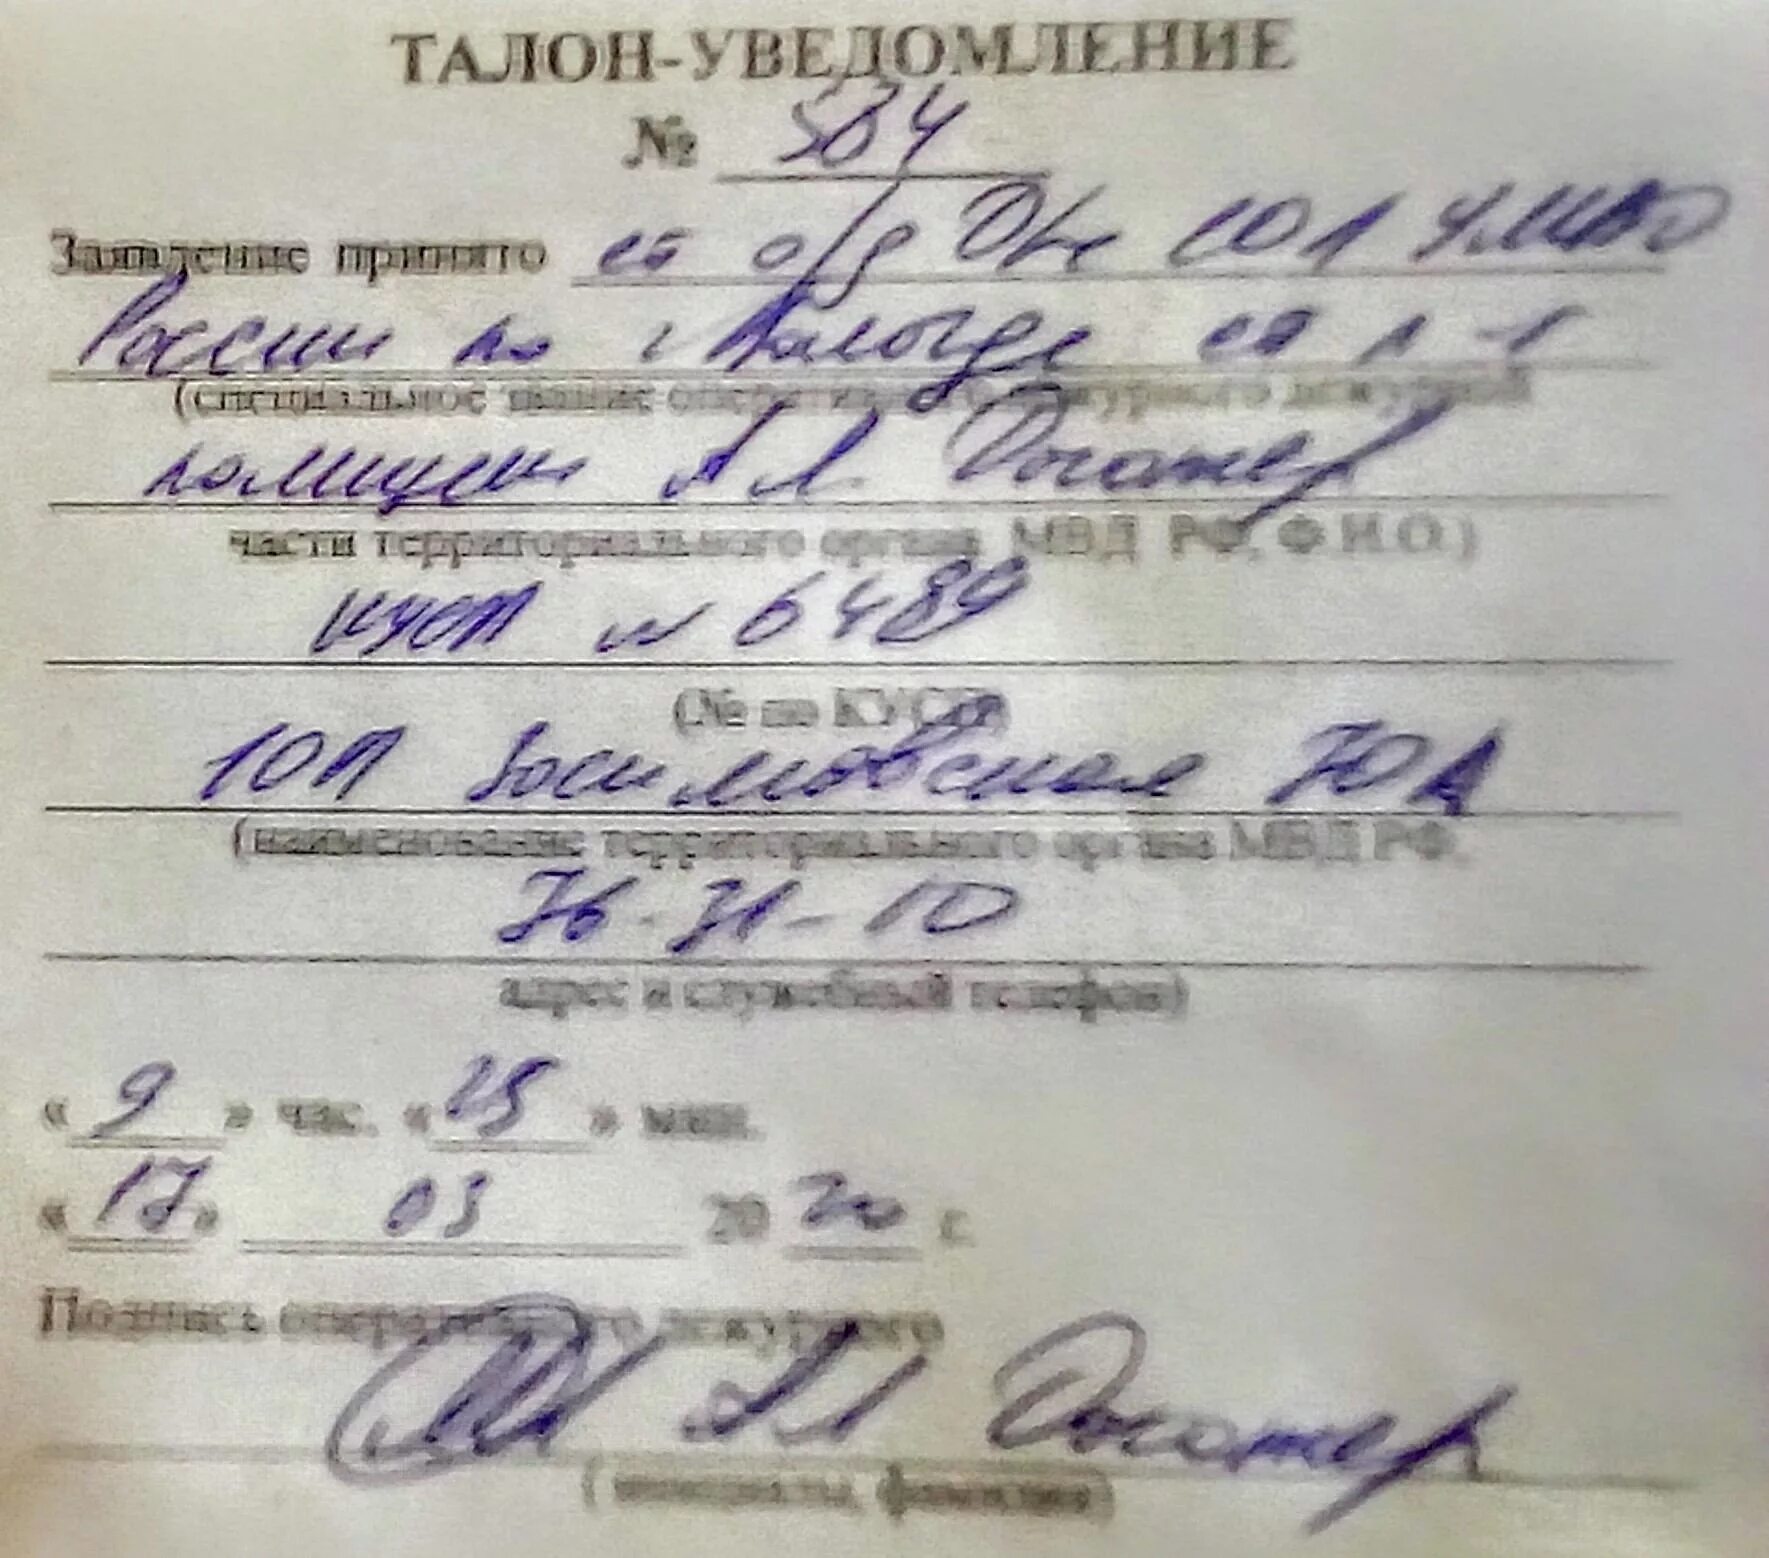 ТАЛОН-УВЕДОМЛЕНИЕ
№ 584
Заявление принято ст о/д УМВД
России по г Вологде ст л-т
(специальное звание оперативного дежурного дежурной
полиции А Л.
части территориального органа МВД РФ, Ф.И.О.)
КУСП № 6489
(№ по КУСП)
1ОП Зосимовская 70А
(наименование территориального органа МВД РФ,
76-71-10
адрес и служебный телефон)
« 9 » час. « 25 » мин.
« 17 » 03 20 20 г.
Подпись оперативного дежурного
А Л
(инициалы, фамилия)